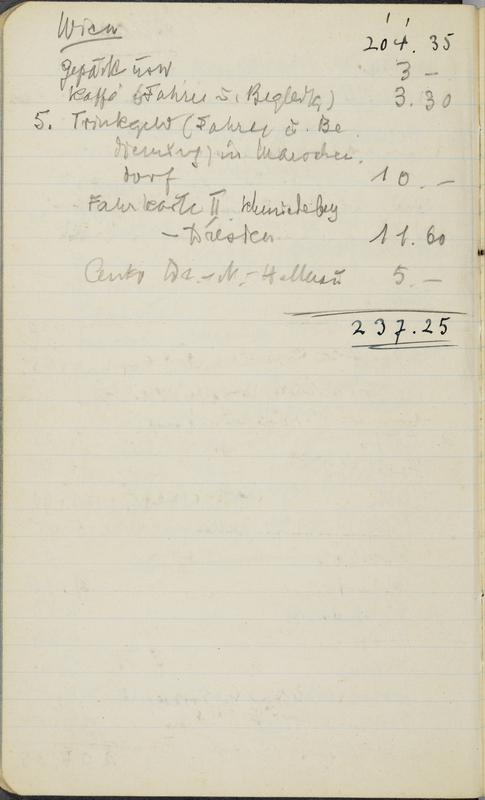 Wien 204.35
Gepäck usw 3 –
Kaffé (Fahrer u. Begleitg) 3.30
5. Trinkgeld (Fahrer u. Be
dienung) in
dorf 10.–
Fahrkarte II. Schmiedeberg
– Dresden 11.60
Dr. – N. – Hellerau 5.–
237.25